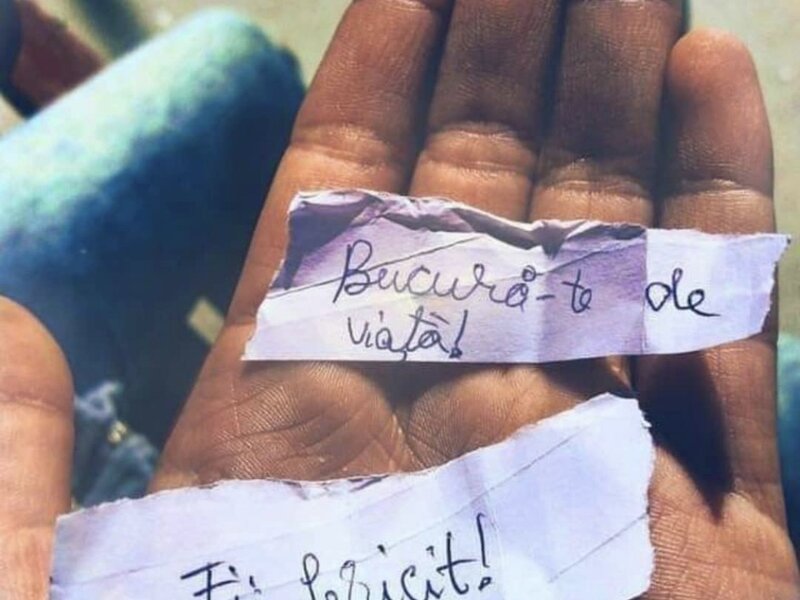 Bucură-te de
viață!
Fii fericit!